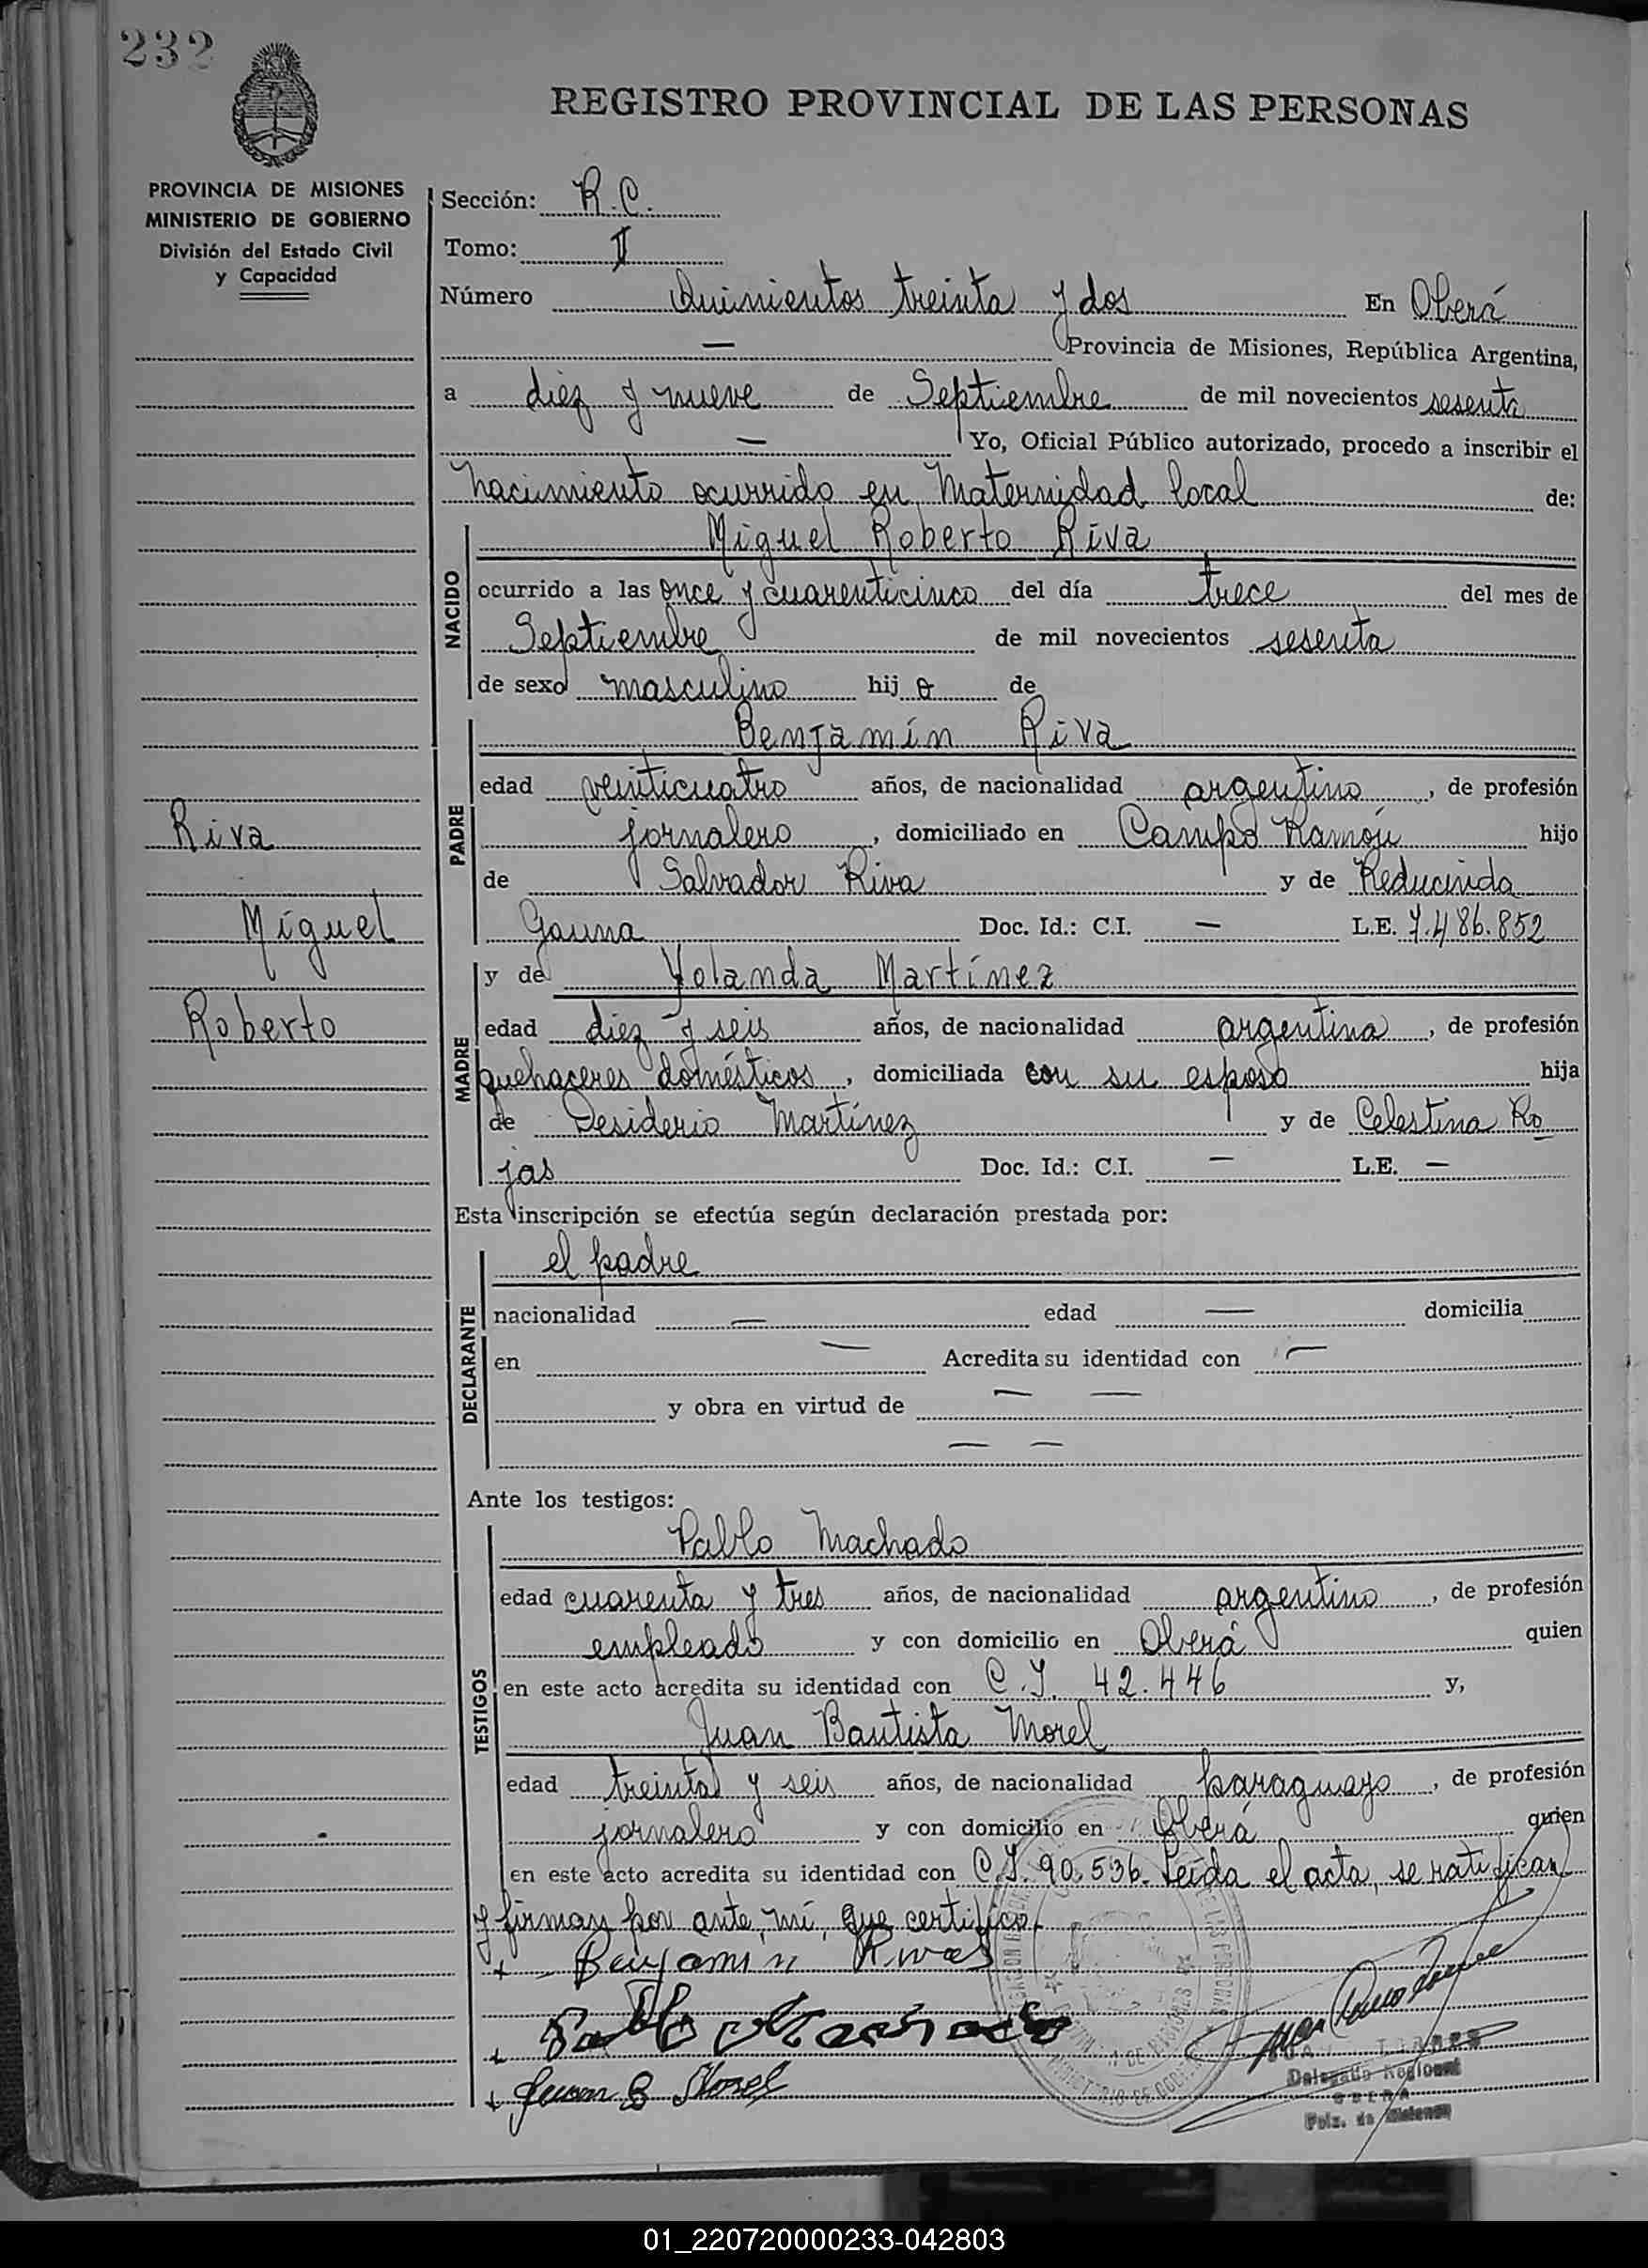 232
REGISTRO PROVINCIAL DE LAS PERSONAS
PROVINCIA DE MISIONES
MINISTERIO DE GOBIERNO
División del Estado Civil
y Capacidad
Sección: R.C.
Tomo: II
Número Quinientos treinta y dos En Oberá
— Provincia de Misiones, República Argentina,
a diez y nueve de Septiembre de mil novecientos sesenta
— Yo, Oficial Público autorizado, procedo a inscribir el
nacimiento ocurrido en Maternidad local de:
NACIDO
Miguel Roberto Riva
ocurrido a las once y cuarenticinco del día trece del mes de
Septiembre de mil novecientos sesenta
de sexo masculino hijo de
PADRE
Benjamín Riva
edad veinticuatro años, de nacionalidad argentino, de profesión
jornalero, domiciliado en Campo Ramón hijo
de Salvador Riva y de Reducinda
Gauna Doc. Id.: C.I. — L.E. 7.486.852
Riva
Miguel
Roberto
MADRE
y de Yolanda Martínez
edad diez y seis años, de nacionalidad argentina, de profesión
quehaceres domésticos, domiciliada con su esposo hija
de Desiderio Martínez y de Celestina Ro
jas Doc. Id.: C.I. — L.E. —
Esta inscripción se efectúa según declaración prestada por:
DECLARANTE
el padre
nacionalidad — edad — domicilia
en — Acredita su identidad con —
y obra en virtud de — —
— —
Ante los testigos:
TESTIGOS
Pablo Machado
edad cuarenta y tres años, de nacionalidad argentino, de profesión
empleado y con domicilio en Oberá quien
en este acto acredita su identidad con C.I. 42.446 y,
Juan Bautista Morel
edad treinta y seis años, de nacionalidad paraguayo, de profesión
jornalero y con domicilio en Oberá quien
en este acto acredita su identidad con C.I. 90.536. Leída el acta, se ratifican
y firman por ante, mí, que certifico.
+ Benjamin Rivas
+ Pablo Machado
+ Juan B Morel
Delegado Regional
OBERA
Pciz. de Misiones
01_220720000233-042803